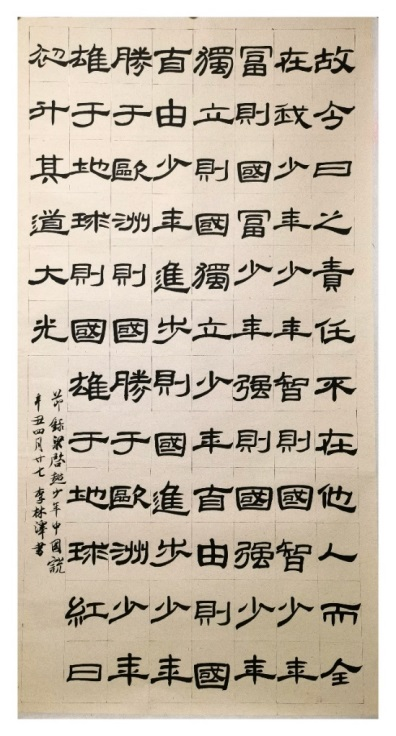 故今日之責任不在他人而全
在我少年少年智則國智少年
冨則國冨少年强則國强少年
獨立則國獨立少年自由則國
自由少年進步則國進步少年
勝于歐洲則國勝于歐洲少年
雄于地球則國雄于地球紅日
初升其道大光
節錄梁啓超少年中國說
辛丑四月廿七 李林澤書